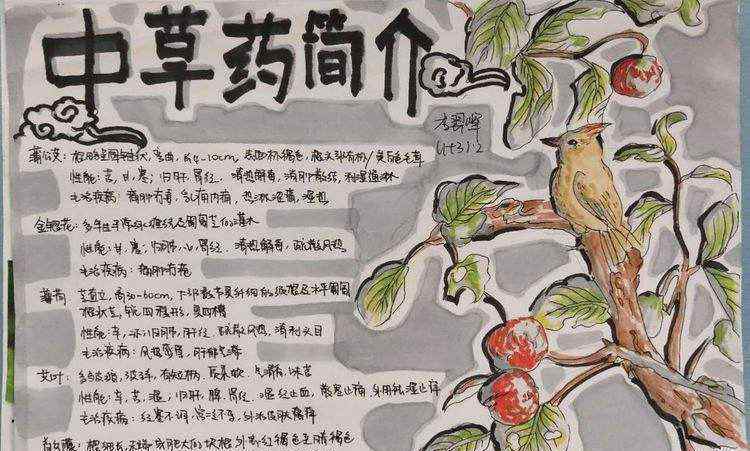 中草药简介
蒲公英：根略呈圆锥状，弯曲，长4-10cm，表面棕褐色，根头部有棕/黄白色毛茸
性能：苦，甘，寒，归肝，胃经，清热解毒，消肿散结，利湿通淋
主治疾病：痈肿疔毒，乳痈内痈，热淋涩痛，湿热
金银花：多年生半常绿缠绕及匍匐茎的灌木
性能：甘，寒，归肺，心，胃经，清热解毒，疏散风热
主治疾病：痈肿疔疮
薄荷：茎直立，高30-60cm，下部数节具纤细的须根及水平匍匐
根状茎，锐四棱形，具四槽
性能：辛，凉，归肺，肝经，疏散风热，清利头目
主治疾病：风热感冒，肝郁气滞
艾叶：多皱缩，破碎，有短柄，质柔软，气清香，味苦
性能：辛，苦，温，归肝，脾，肾经，温经止血，散寒止痛，外用祛湿止痒
主治疾病：经寒不调，宫冷不孕，外治皮肤瘙痒
根细长，末端成肥大的块根，外表红褐色至暗褐色